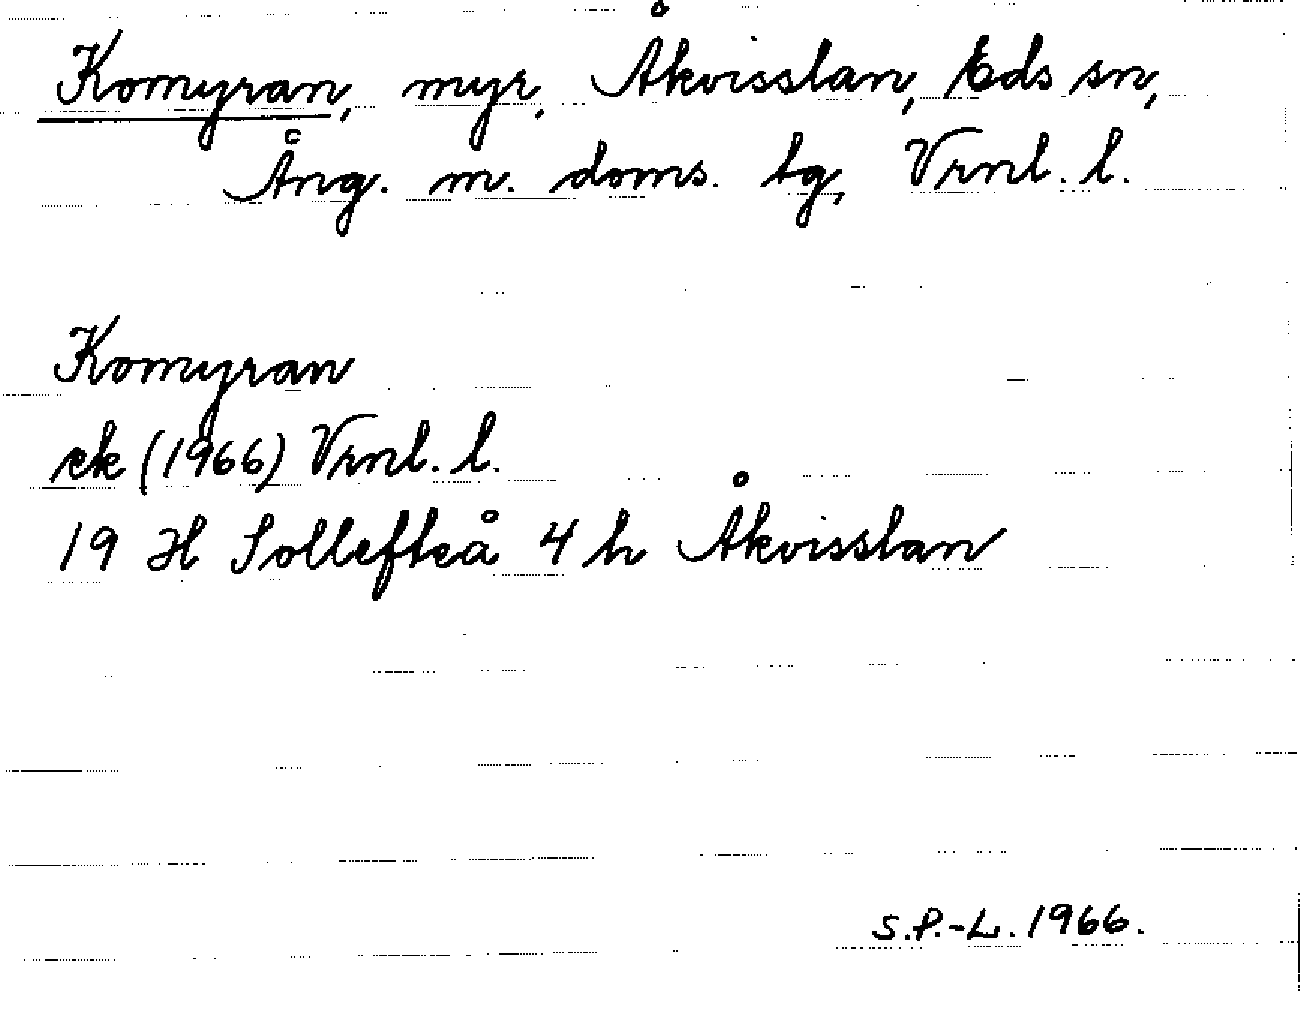 Komyran, myr, Åkvisslan, Eds sn,
Ång. m. doms. tg, Vrnl. l.
Komyran
ek (1966) Vrnl. l.
19 H Sollefteå 4 h Åkvisslan
S.P.-L. 1966.